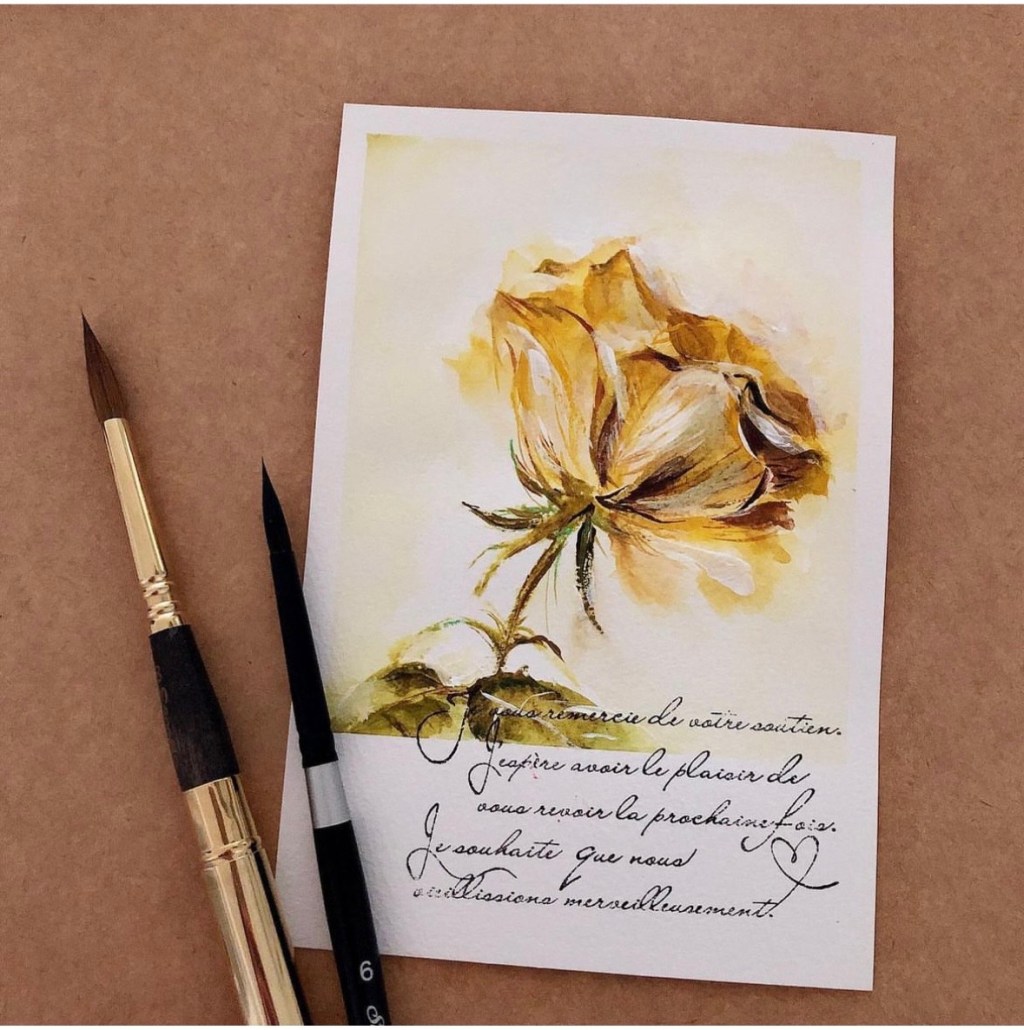 Je vous remercie de votre soutien.
J'espère avoir le plaisir de
vous revoir la prochaine fois.
Je souhaite que nous
vieillissions merveilleusement.
6